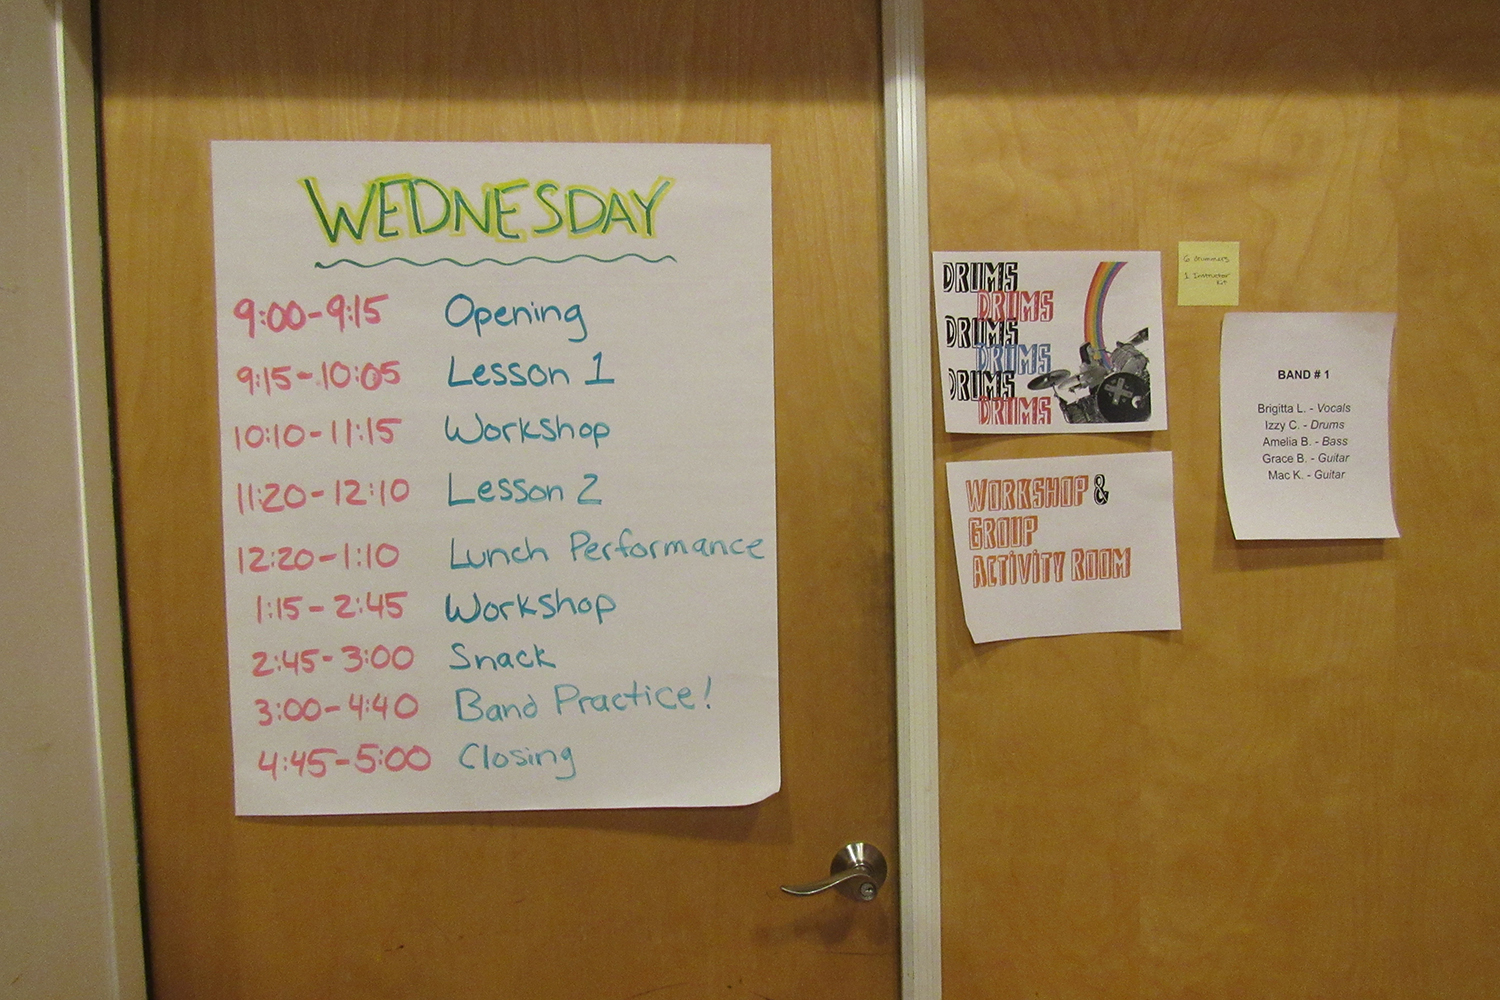 WEDNESDAY
9:00-9:15 Opening
9:15-10:05 Lesson 1
10:10-11:15 Workshop
11:20-12:10 Lesson 2
12:20-1:10 Lunch Performance
1:15-2:45 Workshop
2:45-3:00 Snack
3:00-4:40 Band Practice!
4:45-5:00 Closing
DRUMS
DRUMS
DRUMS
DRUMS
DRUMS
DRUMS
WORKSHOP &
GROUP
ACTIVITY ROOM
6 drummers
1 Instructor
Kit
BAND # 1
Brigitta L. - Vocals
Izzy C. - Drums
Amelia B. - Bass
Grace B. - Guitar
Mac K. - Guitar